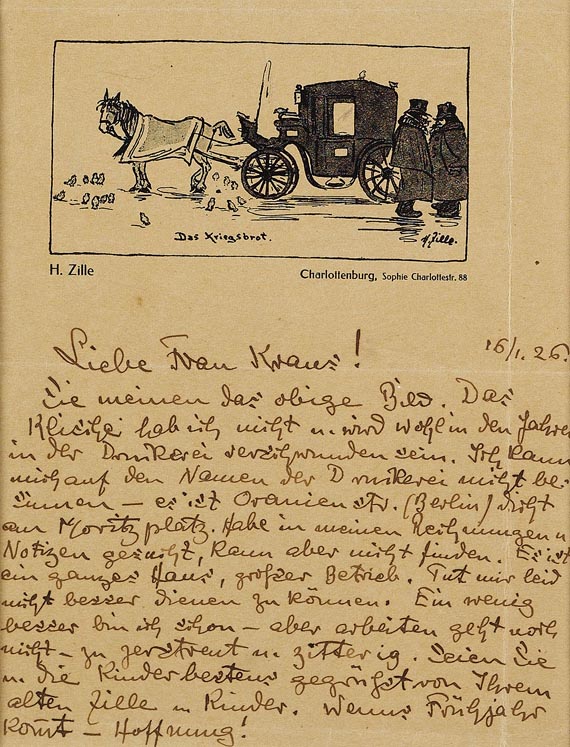 Das Kriegsbrot.
H. Zille.
H. Zille
Charlottenburg, Sophie Charlottestr. 88
16/1. 26.
Liebe Frau Kraus!
Sie meinen das obige Bild. Das
Klischee hab ich nicht u. wird wohl in den Jahren
in der Druckerei verschwunden sein. Ich kann
mich auf den Namen der Druckerei nicht be-
sinnen – es ist Oranienstr. (Berlin) dicht
am Moritzplatz. Habe in meinen Rechnungen u
Notizen gesucht, kann aber nicht finden. Es ist
ein ganzes Haus, großer Betrieb. Tut mir leid
nicht besser dienen zu können. Ein wenig
besser bin ich schon – aber arbeiten geht noch
nicht – zu zerstreut u. zitterig. Seien Sie
u. die Kinder bestens gegrüßt von Ihrem
alten Zille u Kinder. Wenns Frühjahr
komt – Hoffnung!